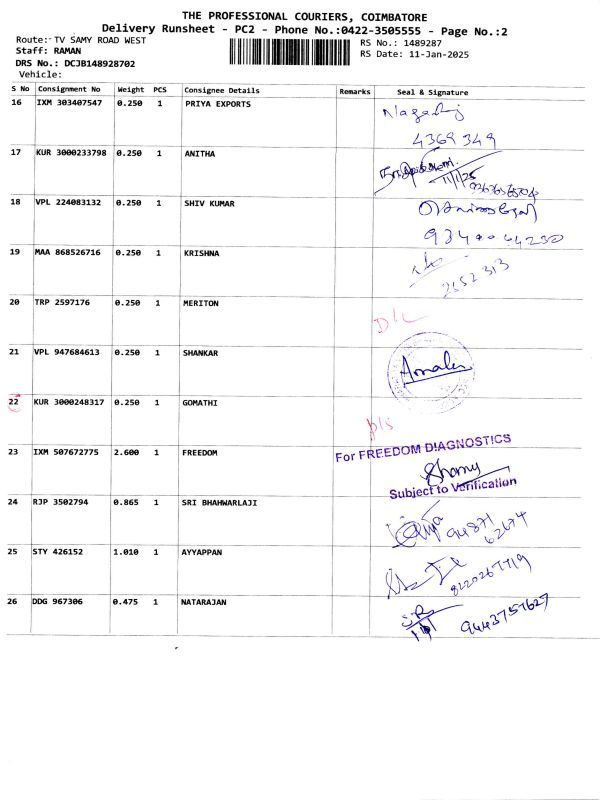 THE PROFESSIONAL COURIERS, COIMBATORE
Delivery Runsheet - PC2 - Phone No.:0422-3505555 - Page No.:2
Route:- TV SAMY ROAD WEST
Staff: RAMAN
DRS No.: DCJB148928702
Vehicle:
RS No.: 1489287
RS Date: 11-Jan-2025
S No Consignment No Weight PCS Consignee Details Remarks Seal & Signature
16 IXM 303407547 0.250 1 PRIYA EXPORTS
4369 349
17 KUR 3000233798 0.250 1 ANITHA
11/1/25
18 VPL 224083132 0.250 1 SHIV KUMAR
19 MAA 868526716 0.250 1 KRISHNA
2652 313
20 TRP 2597176 0.250 1 MERITON
D/L
21 VPL 947684613 0.250 1 SHANKAR
22 KUR 3000248317 0.250 1 GOMATHI
23 IXM 507672775 2.600 1 FREEDOM
For FREEDOM DIAGNOSTICS
Subject to Verification
24 RJP 3502794 0.865 1 SRI BHAHWARLAJI
94871
62674
25 STY 426152 1.010 1 AYYAPPAN
8220267719
26 DDG 967306 0.475 1 NATARAJAN
9443757627